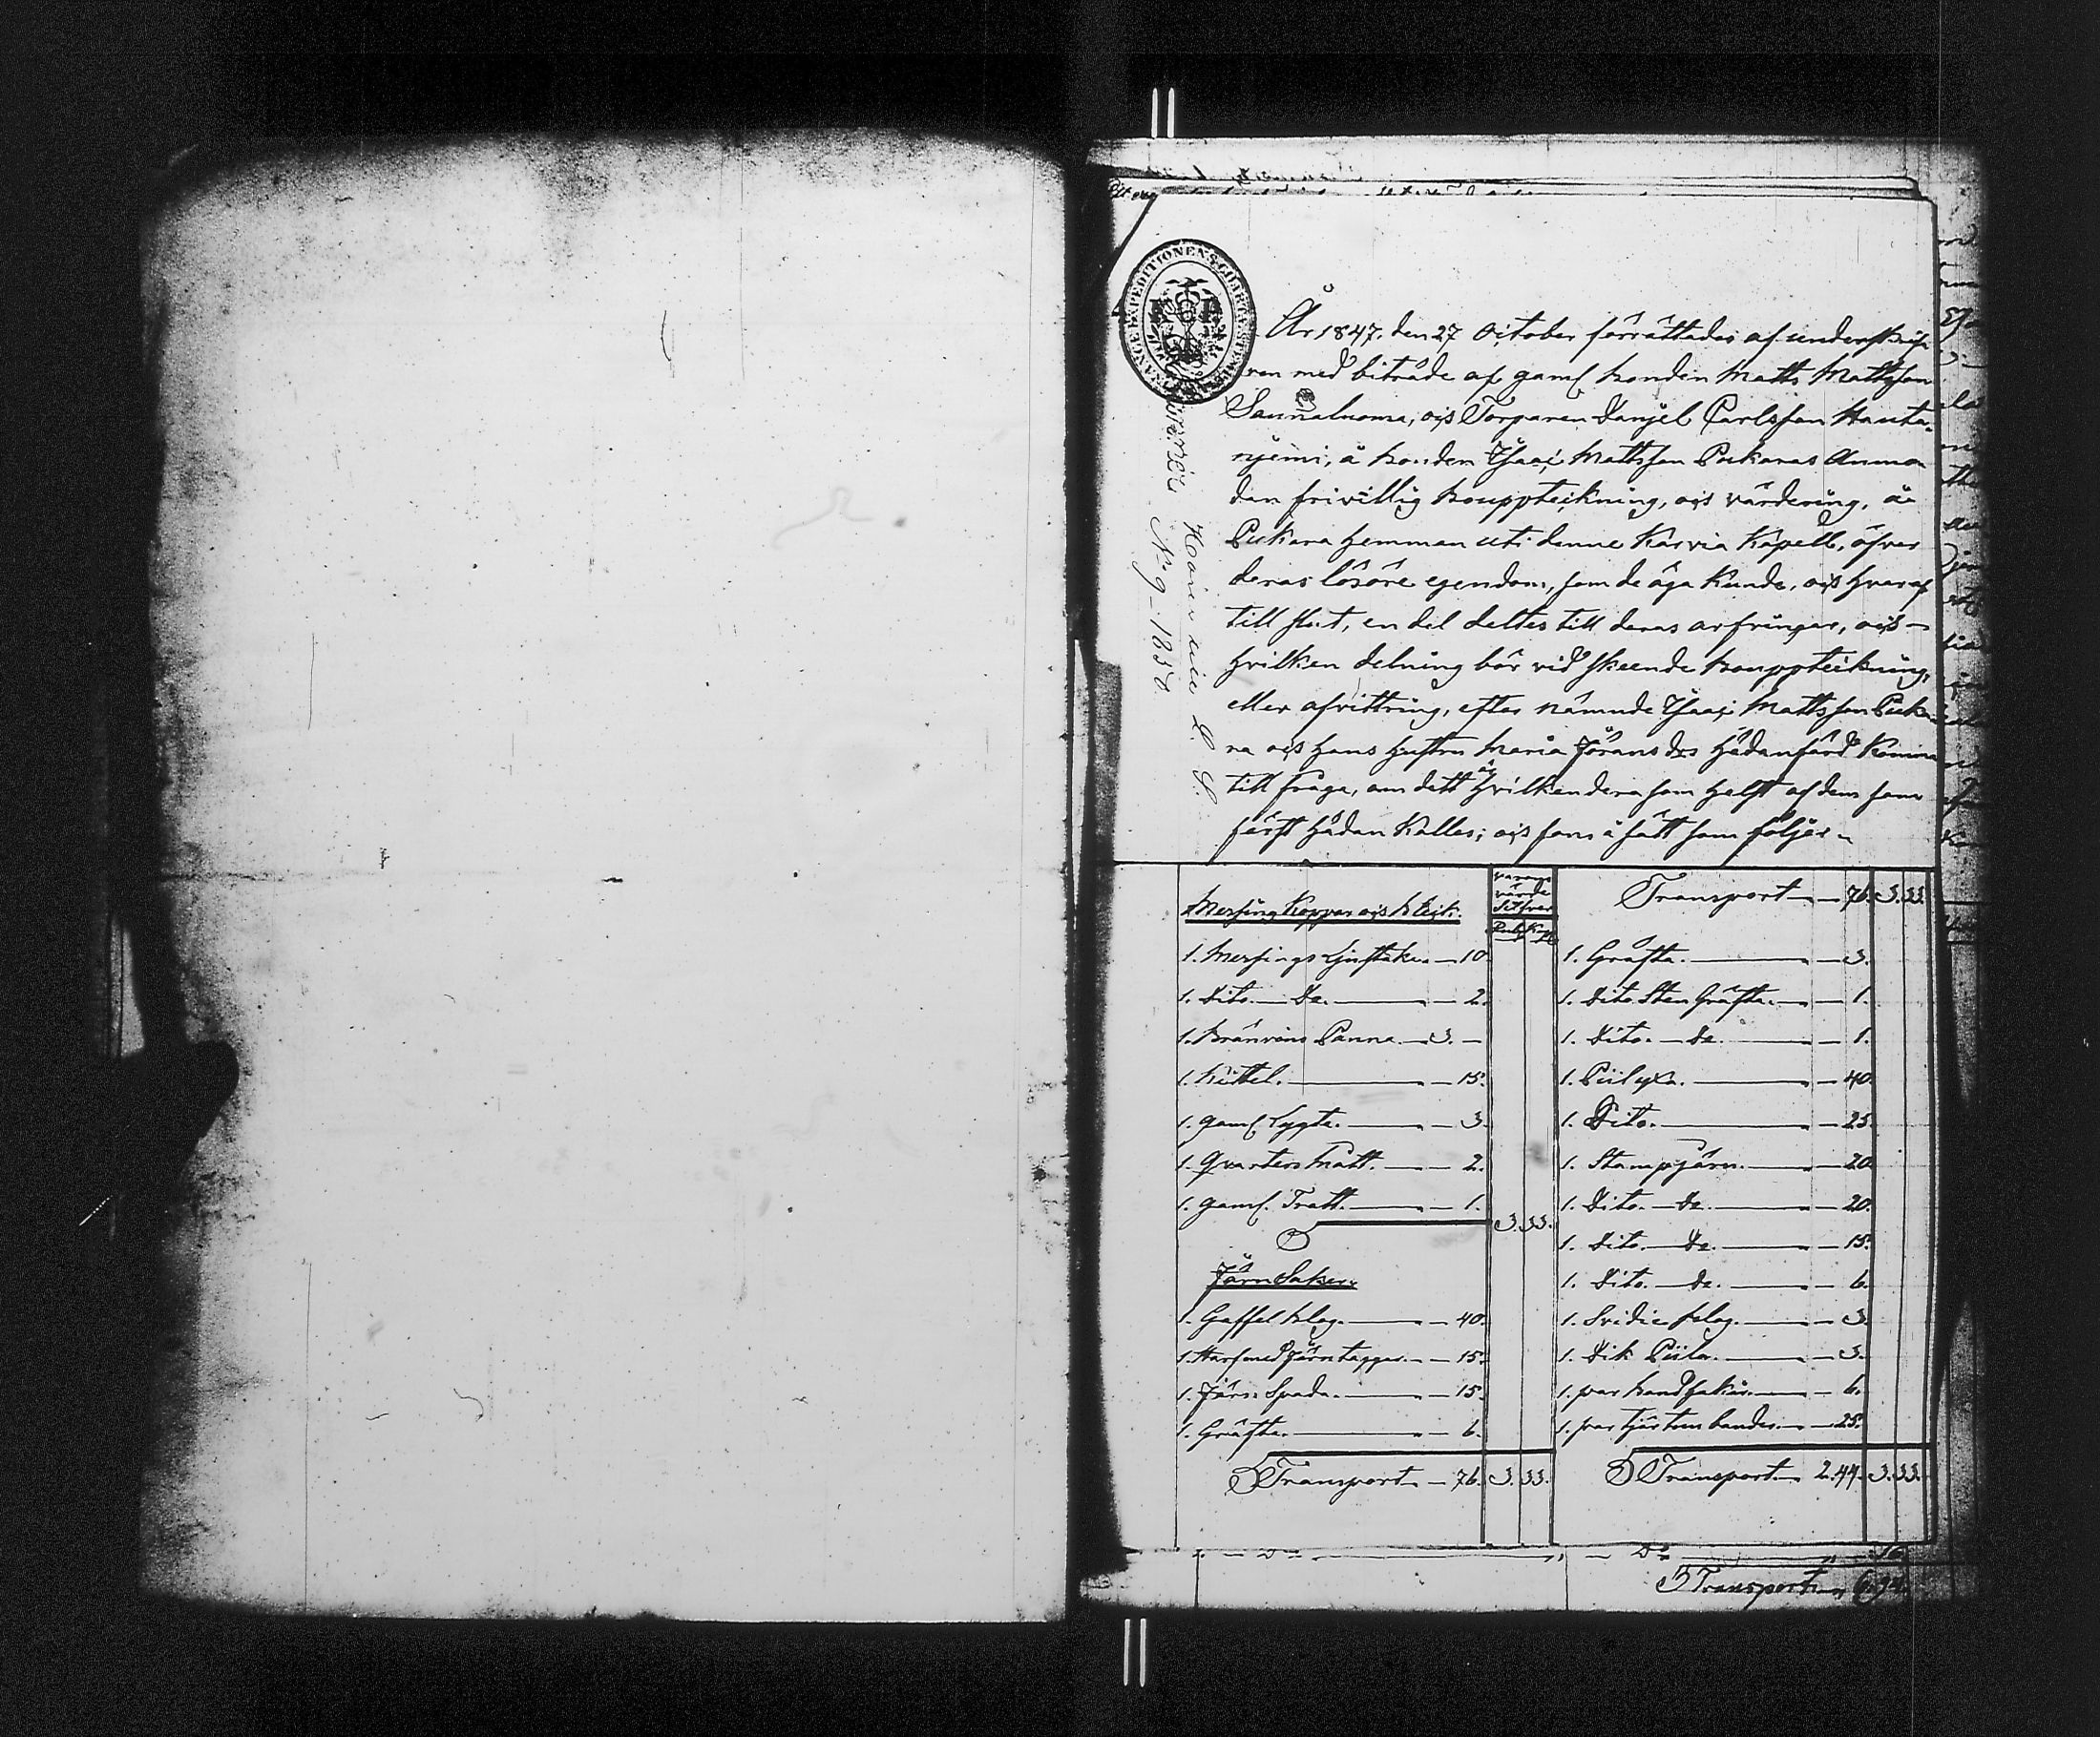 År 1847, den 27 October förrättades af underskrif-
ren med biträde af gaml bonden Matts Mattsson
Sannaluoma, och Torparen Danjel Carlsson Hauta-
njemi, å bonden Isaac Mattsson Pukaras Anmo-
dan frivillig bouppteckning, och värdering, å
Pukara hemman uti denne Karvia Kapell, öfver
deras lösöre egendom, som de äga kunde, och hvaraf
till slut, en del deltes till deras arfvingar, och
hvilken delning bör vid skeende bouppteckning,
eller afvittring, efter nämnde Isaac Mattsson Puka-
ra och hans hustru Maria Jöransdr hädanfärd komma
till fråga, om dett å hvilkendera som helst af dem som
först hädan kallas; och som i sätt som följer
N 9 - 1858
Messing Koppar och Bleck.
varans
värde
Silfver
Rub. Kop.
1. Messings Ljustake — 10.
1. Dito — De. — 2.
1. Bränvins Panna — 3. —
1. Kittel. — 15.
1. gaml. Lygta. — 3.
1. Qvarters Mått. — 2.
1. gaml. Tratt. — 1.
3. 33.
Järn Saker.
1. Gaffel Plog. — 40.
1. Harf med Järntappar. — 15.
1. Järn Spada. — 15.
1. Gräfta. — 6.
Transport — 76. 3. 33.
Transport — 76. 3. 33.
1. Gräfta. — 3.
1. Dito Sten Gräfta. — 1.
1. Dito. — De. — 1.
1. Piilyxa. — 40.
1. Dito. — 25.
1. Stampjärn. — 20.
1. Dito. — De. — 20.
1. Dito. — De. — 15.
1. Dito. — De. — 6.
1. Svidie plog. — 3.
1. Dik Piilu. — 3.
1. par handsakar. — 6.
1. par tjärtun bander. — 25.
Transport 2. 44. 3. 33.
Transport 6. 94.